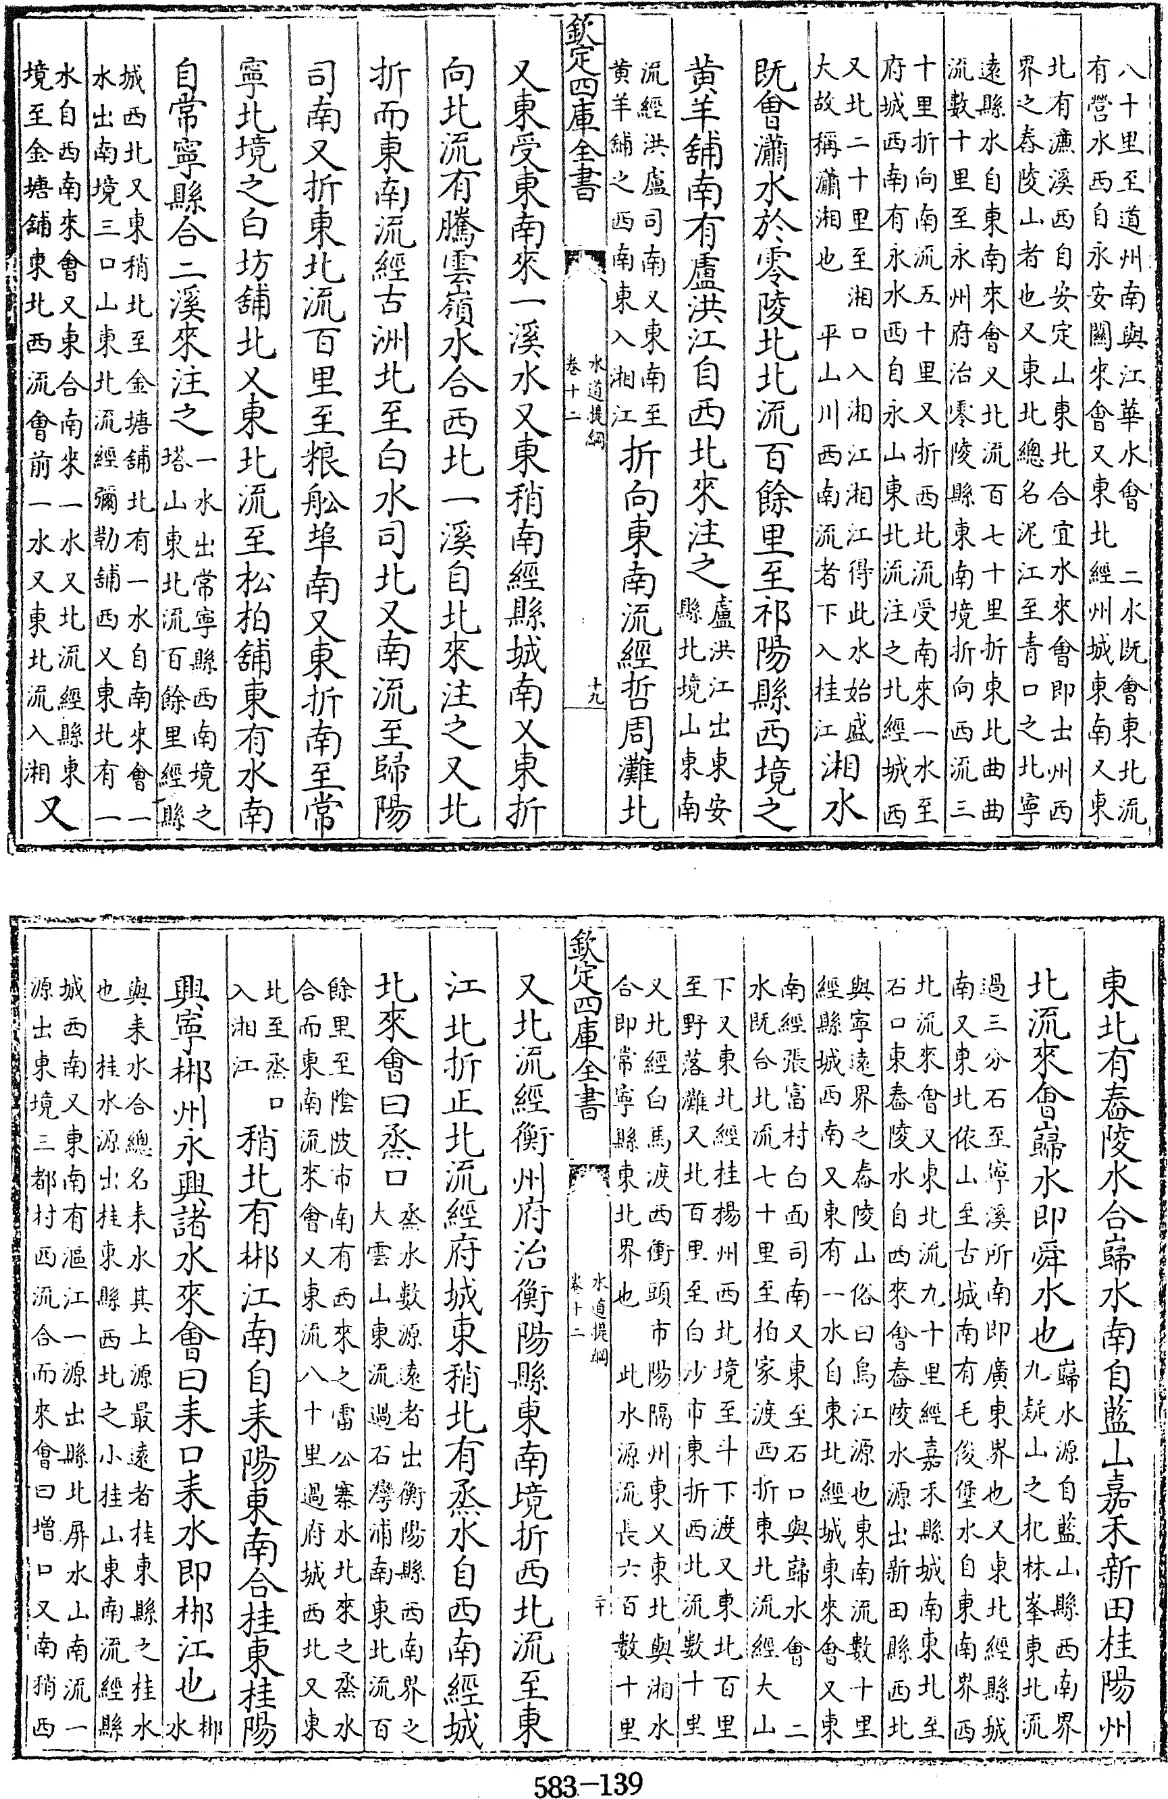 八十里至道州南與江華水會　二水既會東北流
有營水西自永安關來會又東北經州城東南又東
北有濂溪西自安定山東北合宜水來會即士州西
界之舂陵山者也又東北總名泥江至青口之北寧
遠縣水自東南來會又北流百七十里折東北曲曲
流數十里至永州府治零陵縣東南境折向西流三
十里折向南流五十里又折西北流受南來一水至
府城西南有永水西自永山東北流注之北經城西
又北二十里至湘口入湘江湘江得此水始盛
大故稱瀟湘也　平山川西南流者下入桂江
湘水
既會瀟水於零陵北北流百餘里至祁陽縣西境之
黃羊舖南有盧洪江自西北來注之
盧洪江出東安
縣北境山東南
流經洪盧司南又東南至
黃羊舖之西南東入湘江
折向東南流經哲周灘北
欽定四庫全書
水道提綱
卷十二
十九
又東受東南來一溪水又東稍南經縣城南又東折
向北流有騰雲嶺水合西北一溪自北來注之又北
折而東南流經古洲北至白水司北又南流至歸陽
司南又折東北流百里至粮船埠南又東折南至常
寧北境之白坊舖北又東北流至松柏舖東有水南
自常寧縣合二溪來注之
一水出常寧縣西南境之
塔山東北流百餘里經縣
城西北又東稍北至金塘舖北有一水自南來會一
水出南境三口山東北流經彌勒舖西又東北有一
水自西南來會又東合南來一水又北流經縣東
境至金塘舖東北西流會前一水又東北流入湘
又
東北有舂陵水合巋水南自藍山嘉禾新田桂陽州
北流來會巋水即舜水也
巋水源自藍山縣西南界
九疑山之杞林峯東北流
過三分石至寧溪所南即廣東界也又東北經縣城
南又東北依山至古城南有毛俊堡水自東南界西
北流來會又東北流九十里經嘉禾縣城南東北至
石口東舂陵水自西來會舂陵水源出新田縣西北
與寧遠界之舂陵山俗曰烏江源也東南流數十里
經縣城西南又東有一水自東北經城東來會又東
南經張富村白面司南又東至石口與巋水會　二
水既合北流七十里至柏家渡西折東北流經大山
下又東北經桂楊州西北境至斗下渡又東北百里
至野落灘又北百里至白沙市東折西北流數十里
又北經白馬渡西衝頭市陽隔州東又東北與湘水
合即常寧縣東北界也　此水源流長六百數十里
欽定四庫全書
水道提綱
卷十二
二十
又北流經衡州府治衡陽縣東南境折西北流至東
江北折正北流經府城東稍北有烝水自西南經城
北來會曰烝口
烝水數源遠者出衡陽縣西南界之
大雲山東流過石灣浦南東北流百
餘里至陰陂市南有西來之雷公寨水北來之烝水
合而東南流來會又東流八十里過府城西北又東
北至烝口
入湘江
稍北有郴江南自耒陽東南合桂東桂陽
興寧郴州永興諸水來會曰耒口耒水即郴江也
郴
水
與耒水合總名耒水其上源最遠者桂東縣之桂水
也　桂水源出桂東縣西北之小桂山東南流經縣
城西南又東南有漚江一源出縣北屏水山南流一
源出東境三都村西流合而來會曰增口又南稍西
583-139